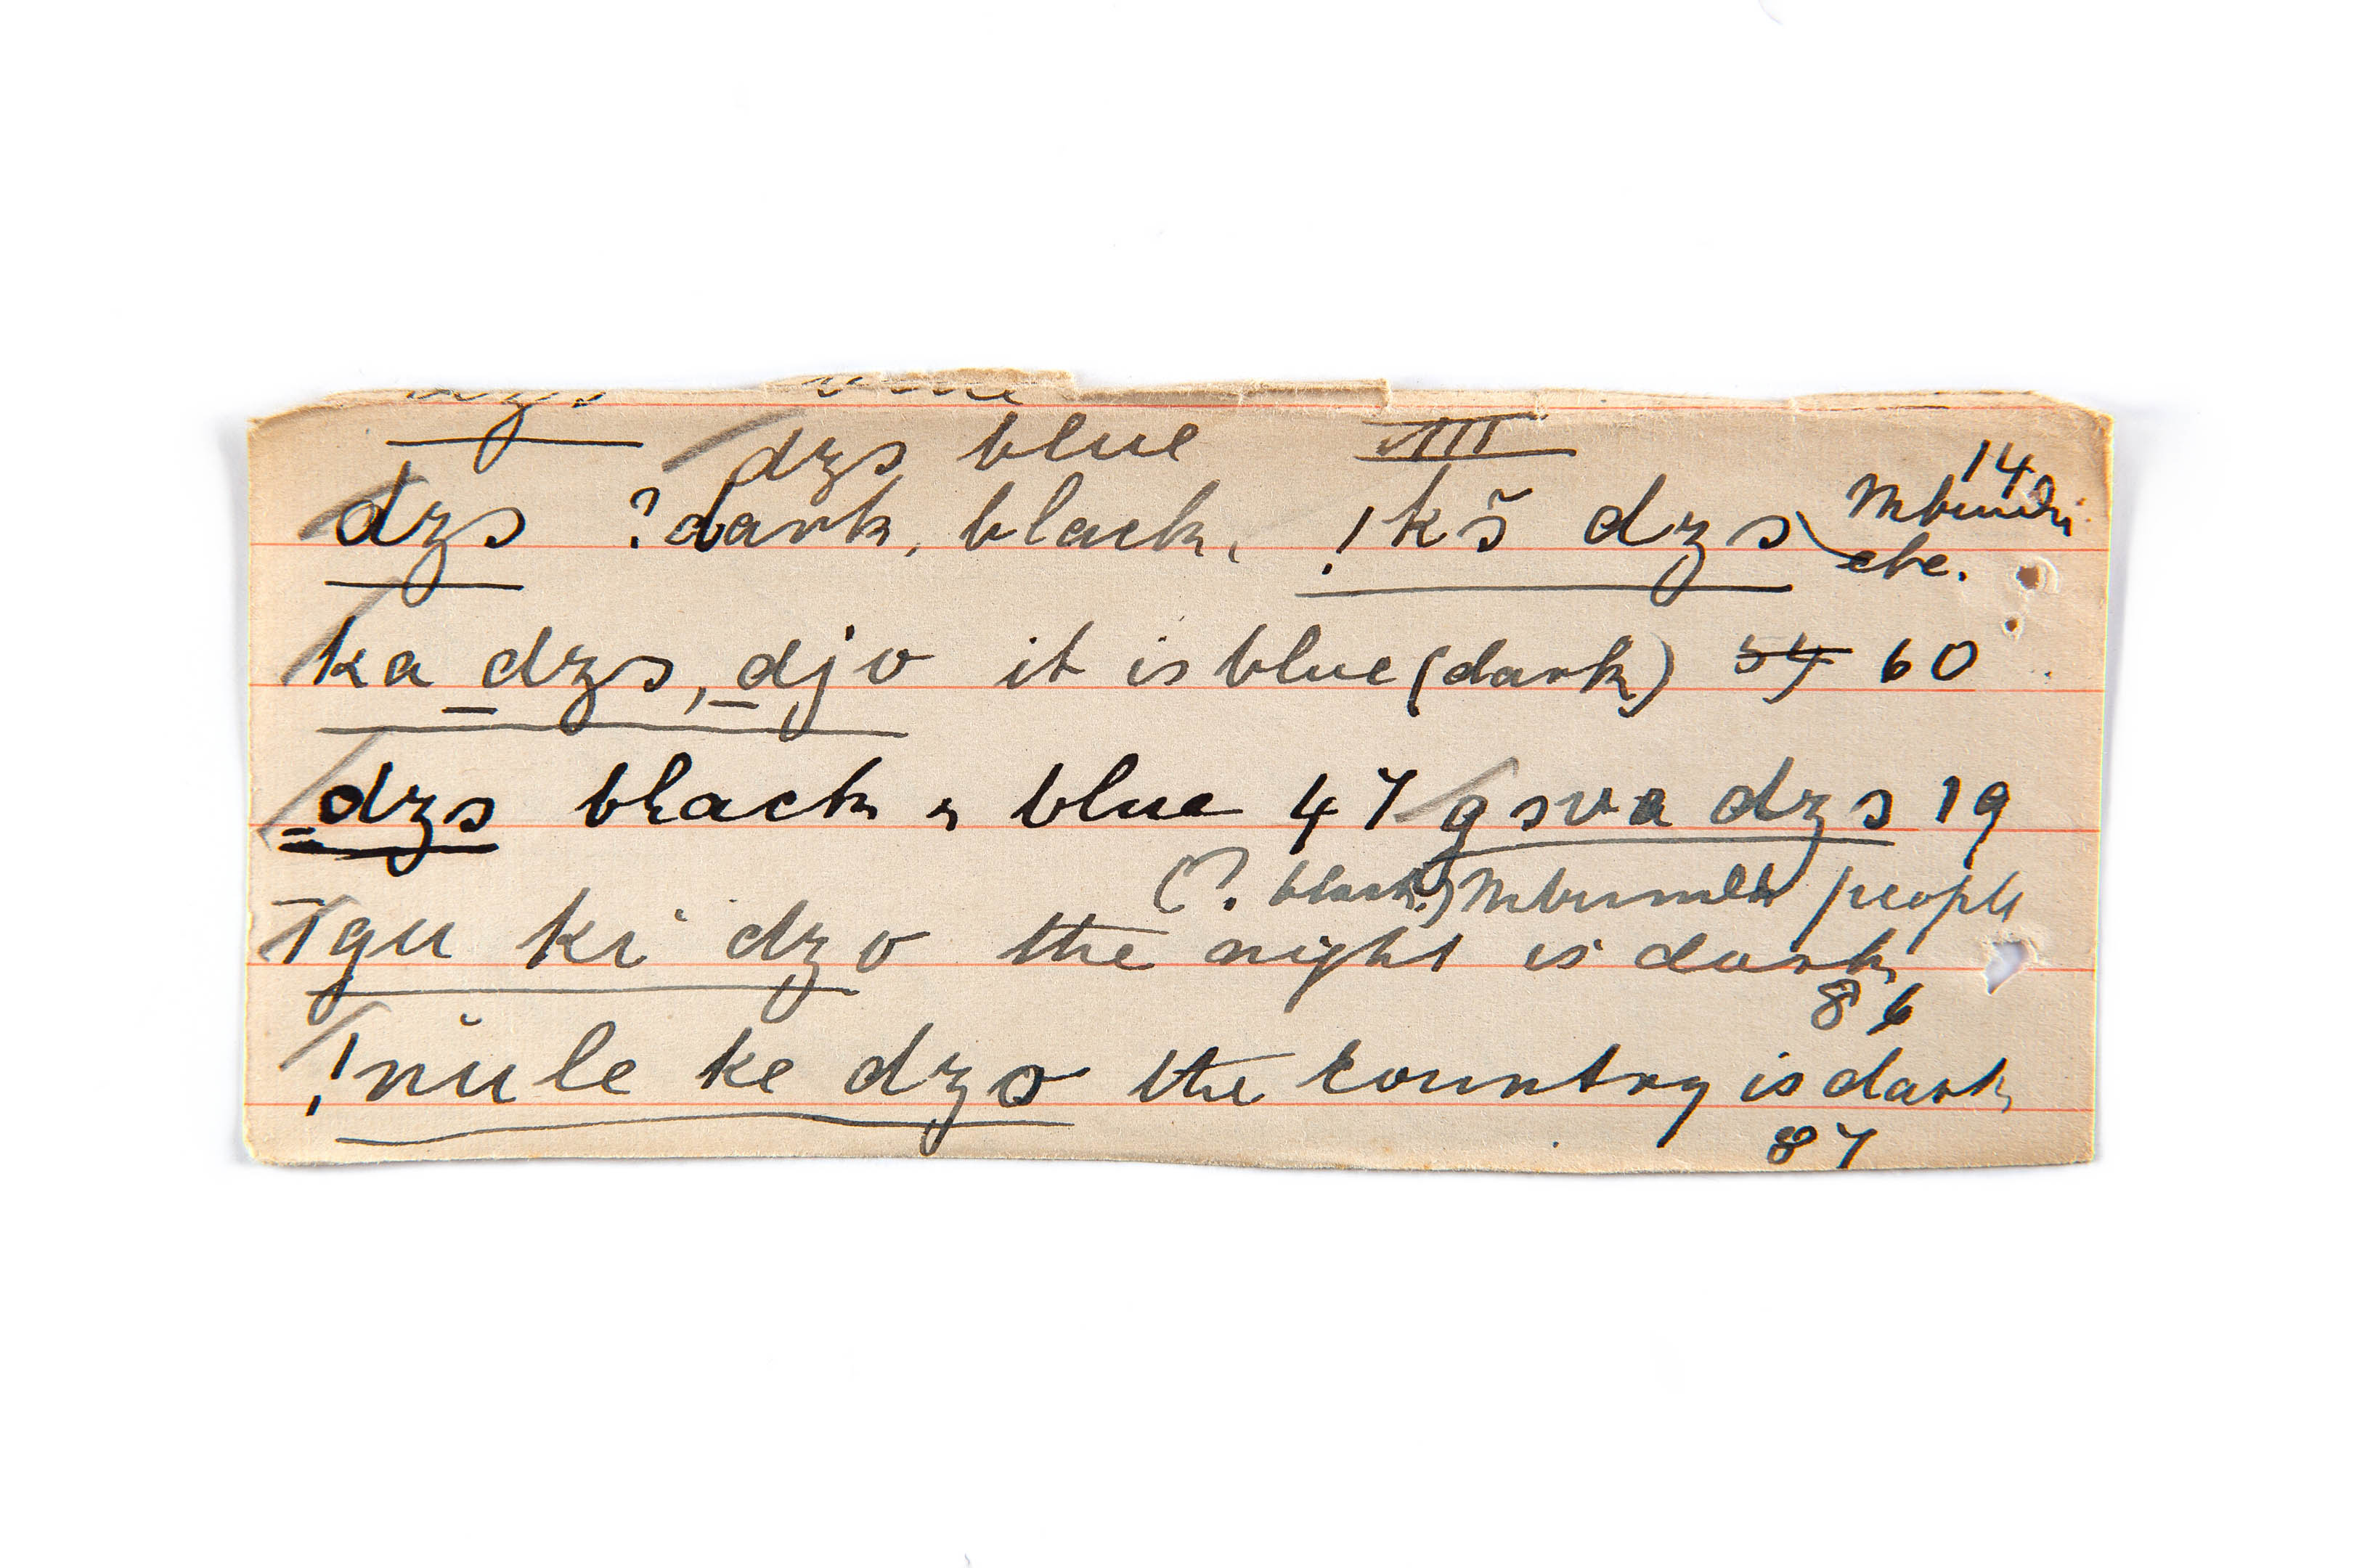 dzs blue
dzs blue III
14
dzs ? dark, black, !kš dzs Mbundu
etc.
ka dzs, djo it is blue (dark) 54 60
dzs black & blue 47 gsva dzs 19
(? black.) people
gu ki dzo the night is dark
86
!nule ke dzo the country is dark
87